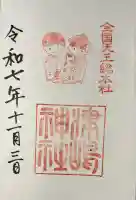 全国天王総本社
津島
神社
令和七年十一月三日